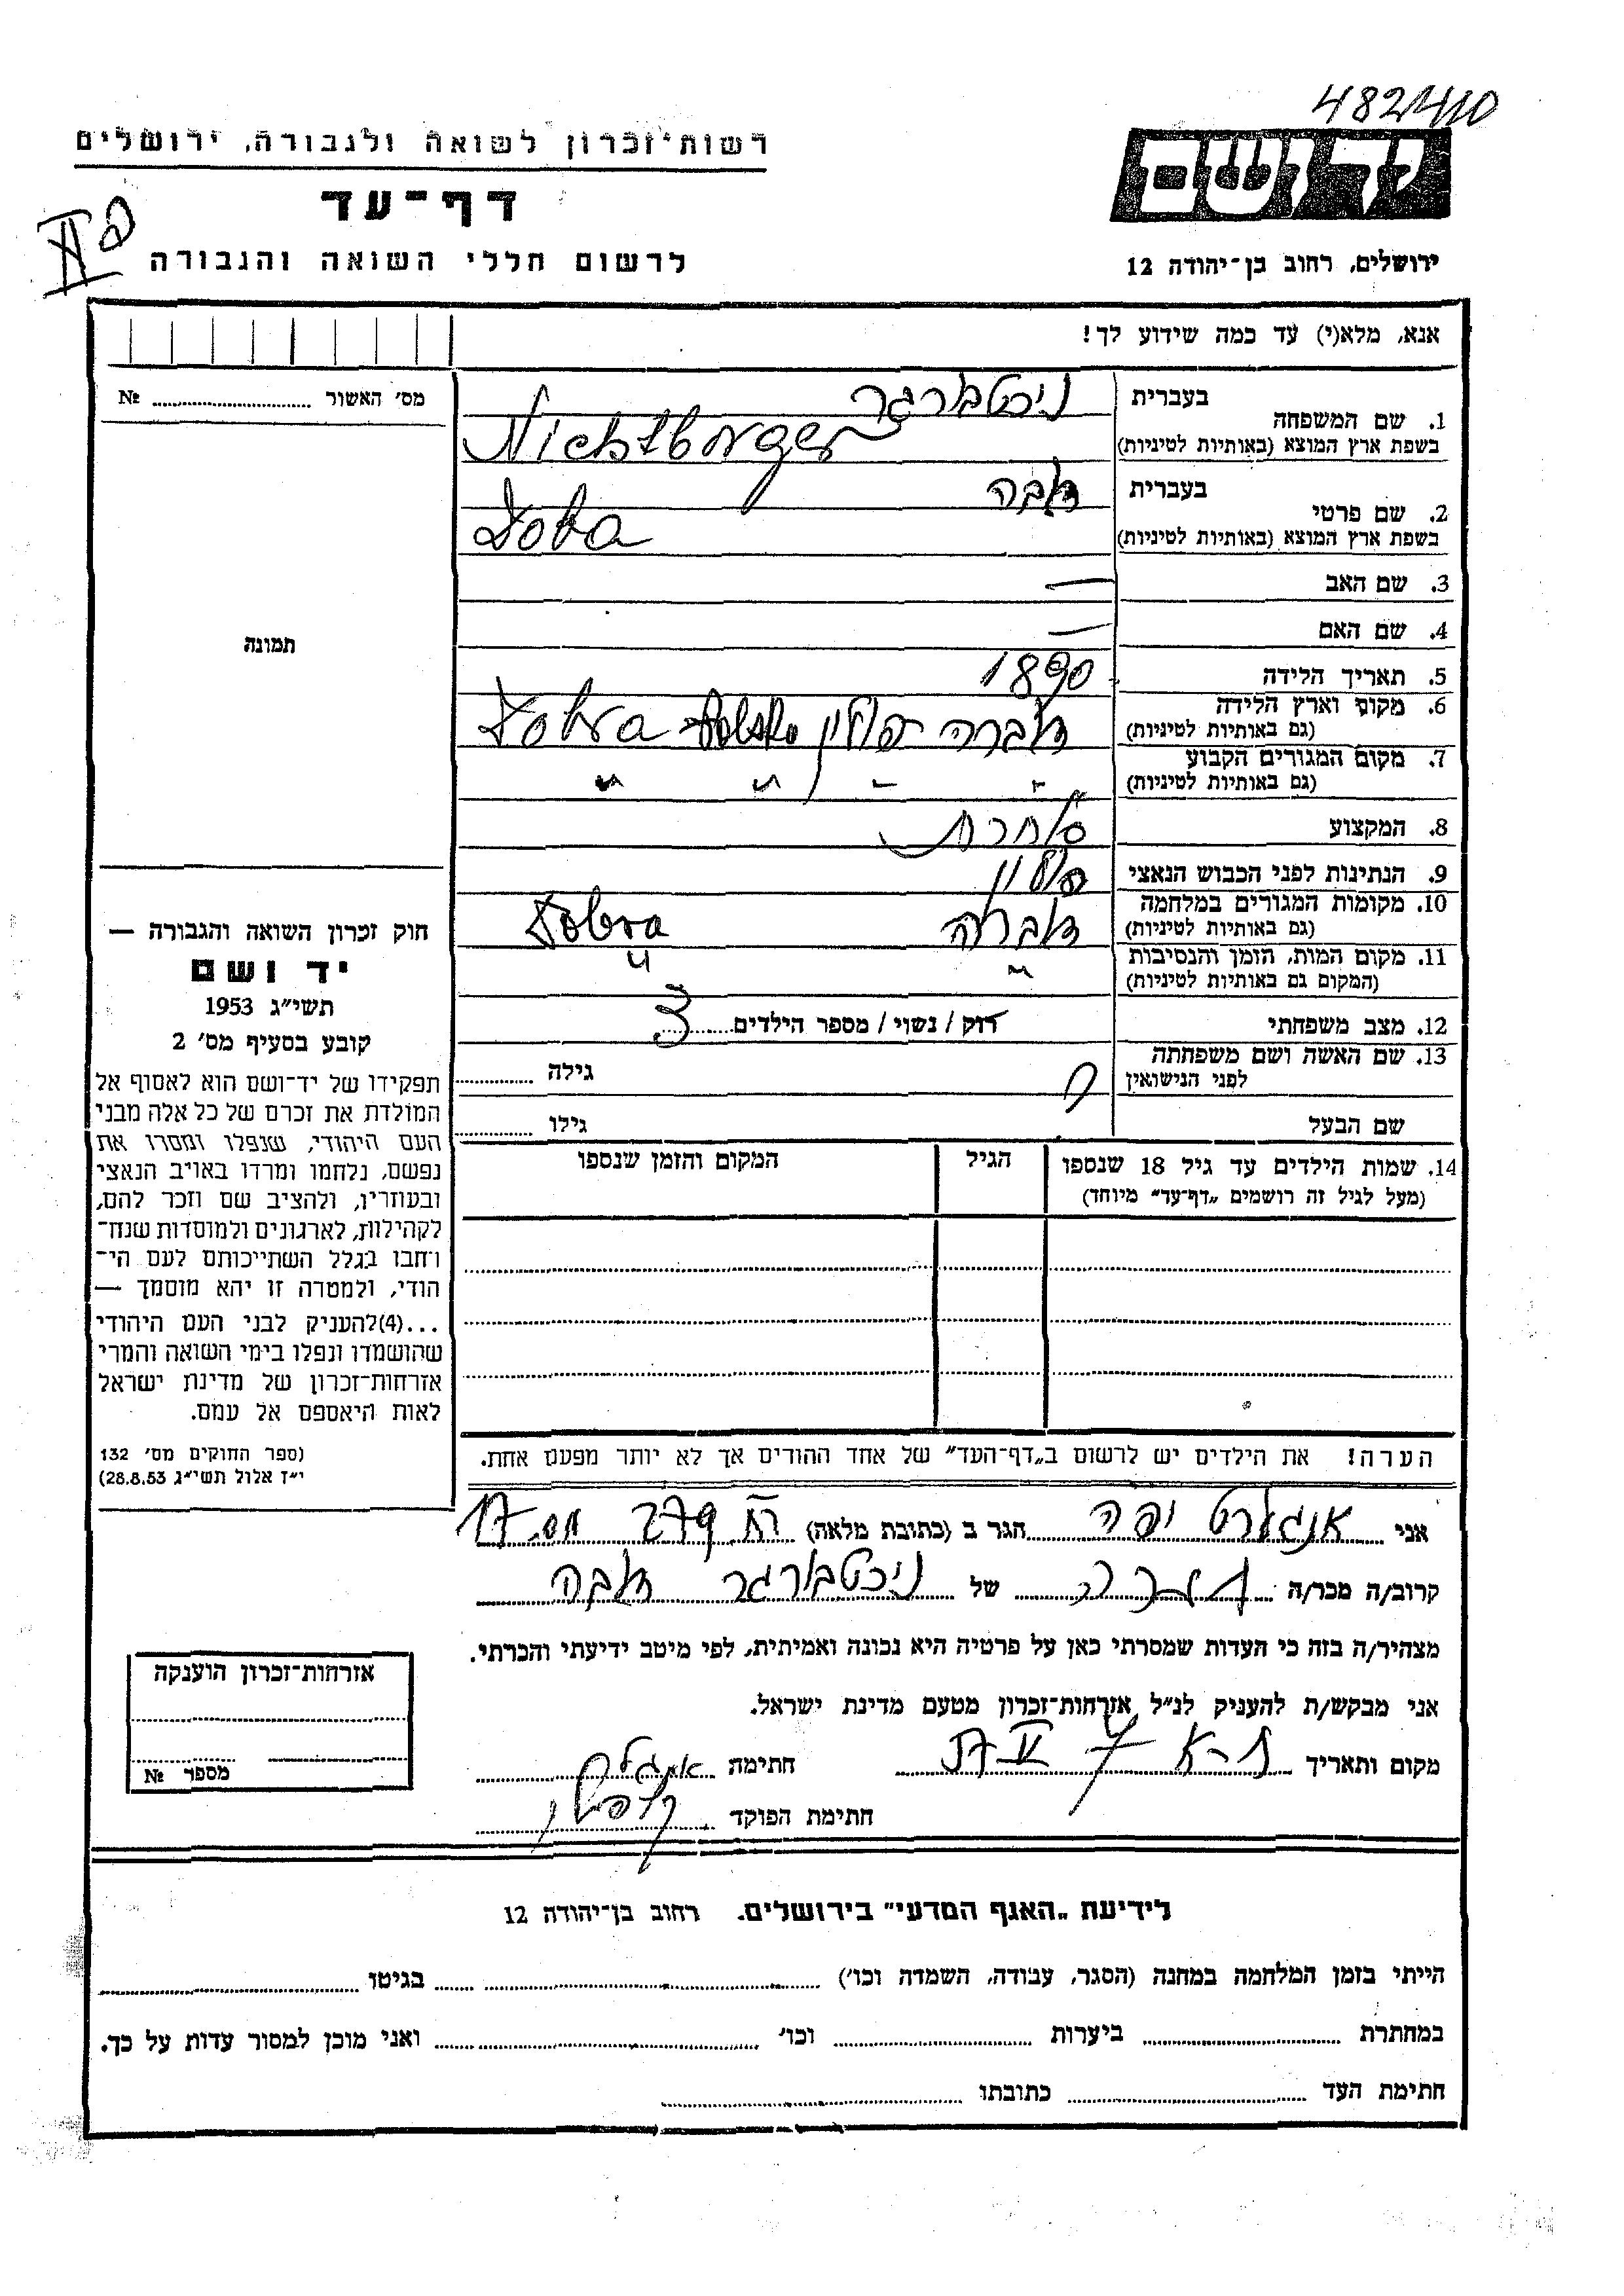 482410
רשות־זכרון לשואה ולגבורה, ירושלים
יד ושם
דף־עד
לרשום חללי השואה והגבורה
ירושלים, רחוב בן־יהודה 12
אנא, מלא(י) עד כמה שידוע לך!
מס׳ האשור № 
1. שם המשפחה בעברית ניכטבורגר
בשפת ארץ המוצא (באותיות לטיניות) Nichtborger
2. שם פרטי בעברית דובה
בשפת ארץ המוצא (באותיות לטיניות) Doba
3. שם האב —
4. שם האם —
5. תאריך הלידה 1890
6. מקום וארץ הלידה (גם באותיות לטיניות) דוברה פולין Dobra Polska
7. מקום המגורים הקבוע (גם באותיות לטיניות) " " " "
8. המקצוע סוחרת
9. הנתינות לפני הכבוש הנאצי פולין
10. מקומות המגורים במלחמה (גם באותיות לטיניות) דוברה Dobra
11. מקום המות, הזמן והנסיבות (המקום גם באותיות לטיניות) " "
12. מצב משפחתי רוק / נשוי / מספר הילדים 3
13. שם האשה ושם משפחתה לפני הנישואין גילה
שם הבעל גילו
14. שמות הילדים עד גיל 18 שנספו (מעל לגיל זה רושמים „דף־עד״ מיוחד) הגיל המקום והזמן שנספו
הערה! את הילדים יש לרשום ב„דף־העד״ של אחד ההורים אך לא יותר מפעם אחת.
תמונה
חוק זכרון השואה והגבורה —
יד ושם
תשי״ג 1953
קובע בסעיף מס׳ 2
תפקידו של יד־ושם הוא לאסוף אל
המולדת את זכרם של כל אלה מבני
העם היהודי, שנפלו ומסרו את
נפשם, נלחמו ומרדו באויב הנאצי
ובעוזריו, ולהציב שם וזכר להם,
לקהילות, לארגונים ולמוסדות שנח־
רבו בגלל השתייכותם לעם הי־
הודי, ולמטרה זו יהא מוסמך —
...(4)להעניק לבני העם היהודי
שהושמדו ונפלו בימי השואה והמרי
אזרחות־זכרון של מדינת ישראל
לאות היאספם אל עמם.
(ספר החוקים מס׳ 132
י״ז אלול תשי״ג 28.8.53)
אני אנגלרט יפה הגר ב (כתובת מלאה) 279
קרוב/ה מכר/ה של ניכטבורגר דובה
מצהיר/ה בזה כי העדות שמסרתי כאן על פרטיה היא נכונה ואמיתית, לפי מיטב ידיעתי והכרתי.
אני מבקש/ת להעניק לנ״ל אזרחות־זכרון מטעם מדינת ישראל.
מקום ותאריך ת-א חתימה
חתימת הפוקד
אזרחות־זכרון הוענקה
מספר №
לידיעת „האגף המדעי״ בירושלים. רחוב בן־יהודה 12
הייתי בזמן המלחמה במחנה (הסגר, עבודה, השמדה וכו׳) בגיטו
במחתרת ביערות וכו׳ ואני מוכן למסור עדות על כך.
חתימת העד כתובתו